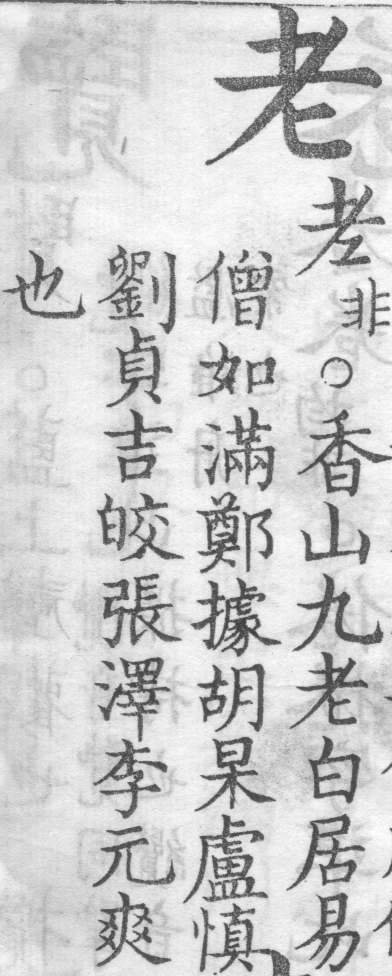 老
耂非○香山九老白居易
僧如滿鄭據胡杲盧慎
劉貞吉皎張澤李元爽
也